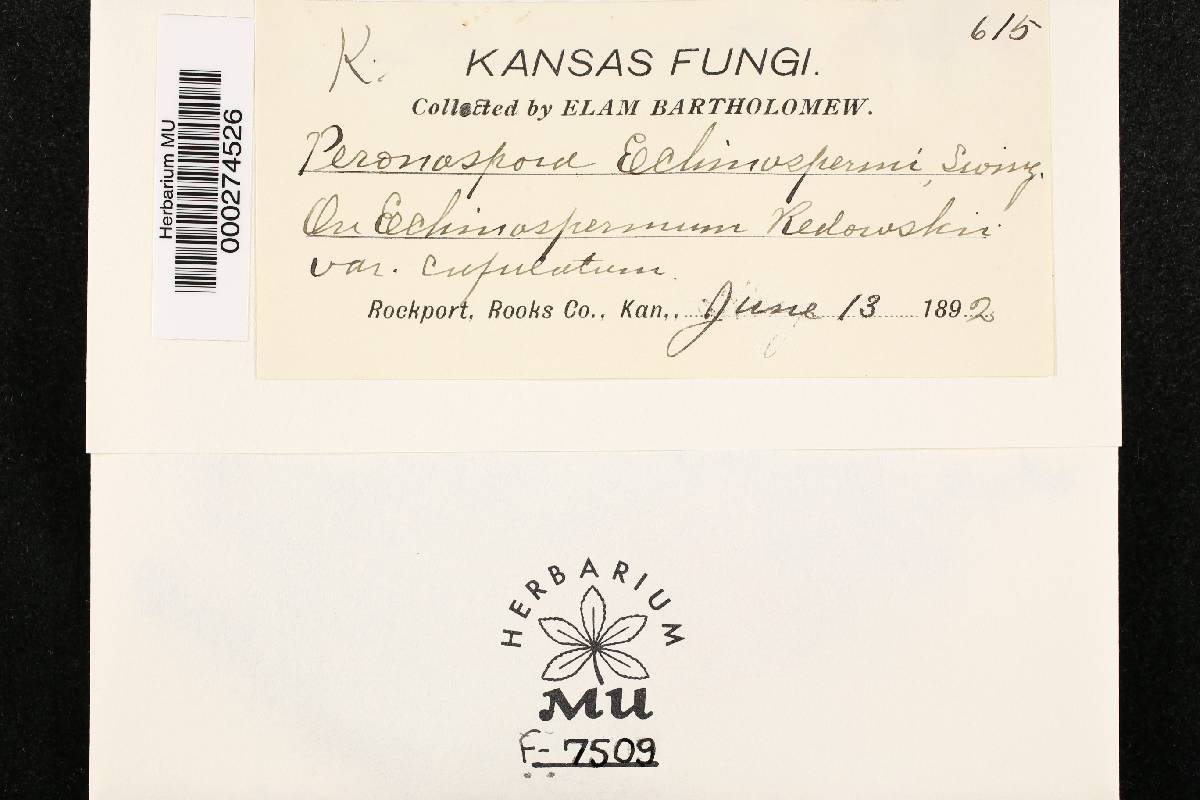 615
K.
KANSAS FUNGI.
Collected by ELAM BARTHOLOMEW.
Peronospora Echinospermi, Swing.
On Echinospermum Redowskii
var. cupulatum.
Rockport, Rooks Co., Kan., June 13 1892
Herbarium MU
000274526
HERBARIUM
MU
F-7509